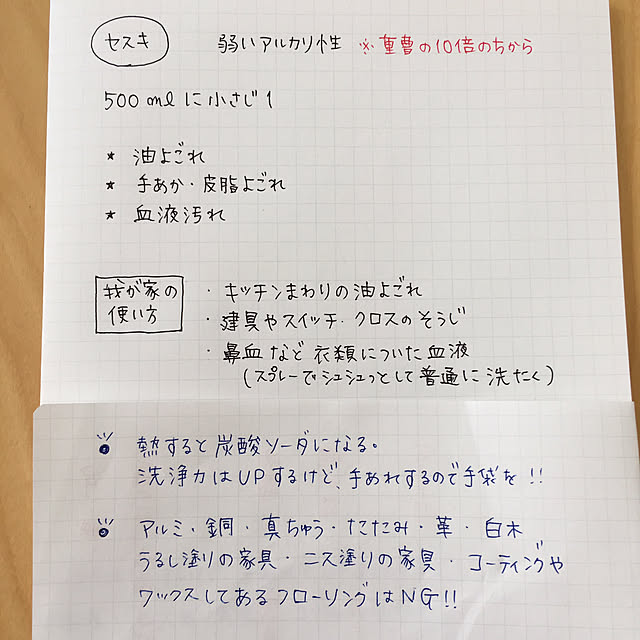 セスキ 弱いアルカリ性 ※重曹の10倍のちから
500mlに小さじ1
★ 油よごれ
★ 手あか・皮脂よごれ
★ 血液汚れ
我が家の使い方
・キッチンまわりの油よごれ
・建具やスイッチ・クロスのそうじ
・鼻血など衣類についた血液
(スプレーでシュシュっとして普通に洗たく)
熱すると炭酸ソーダになる。
洗浄力はUPするけど、手あれするので手袋を!!
アルミ・銅・真ちゅう・たたみ・革・白木
うるし塗りの家具・ニス塗りの家具・コーティングや
ワックスしてあるフローリングはNG!!